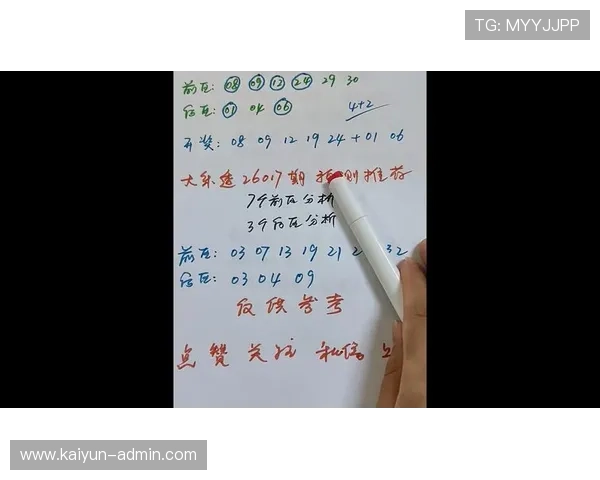 TG: MYYJJPP
前区: 08 09 12 24 29 30
后区: 01 04 06 4+2
开奖: 08 09 12 19 24 + 01 06
大乐透26017期 推荐
7个前区分析
3个后区分析
前区: 03 07 13 19 21 2 32
后区: 03 04 09
仅供参考
点赞 关注 私信
www.kaiyun-admin.com